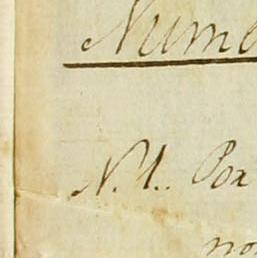 Nume
N. 1. Pox
no